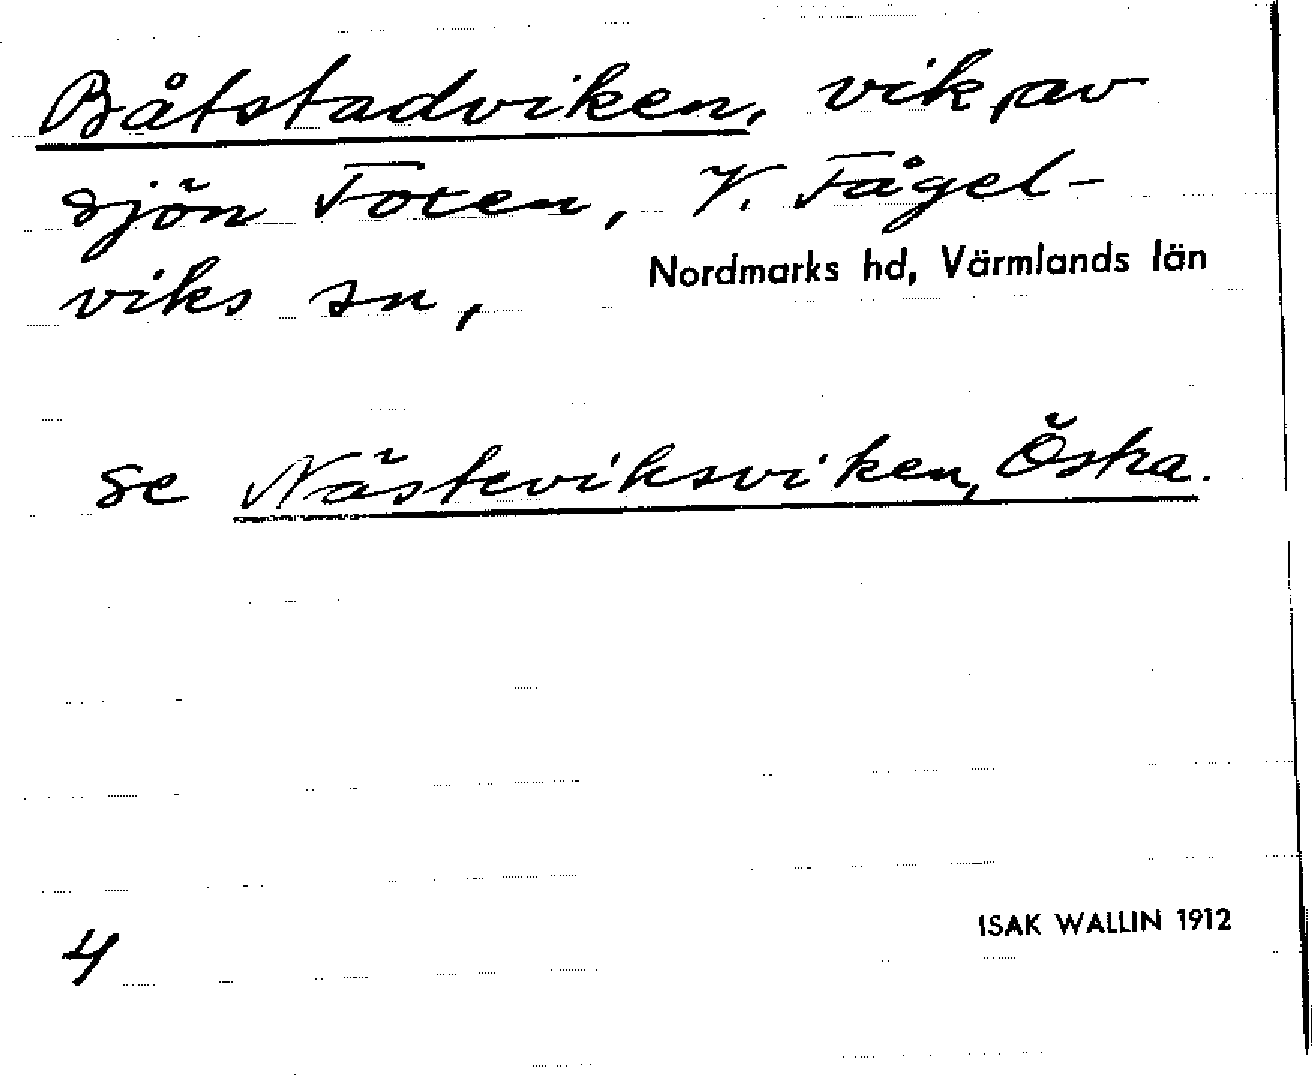 Båtstadviken, vik av
sjön Foxen, V. Fågel-
viks sn, Nordmarks hd, Värmlands län
se Nästeviksviken, Östra.
4
ISAK WALLIN 1912